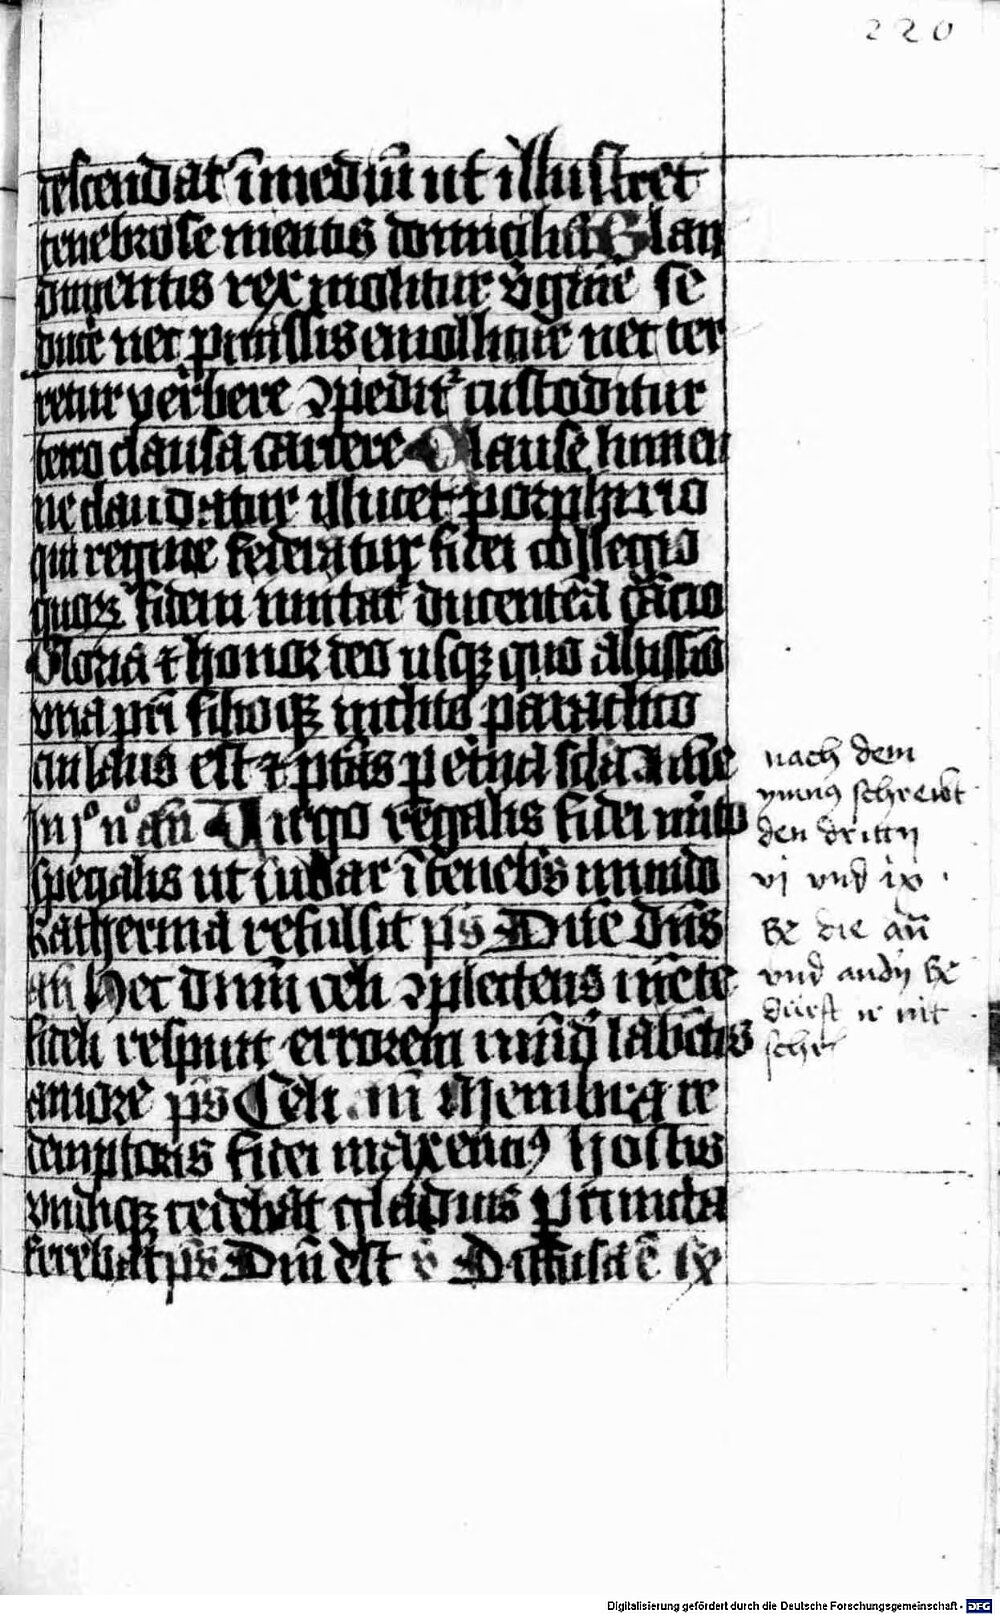 220
descendat ī mediū ut illustret
tenebrose mentis domiciliū Blan
dimentis rex molitur v̄gine se
duce nec pmissis emollitur nec ter
retur verbere ɔpedit᷑ custoditur
tetro clausa carcere Clause lumen
ne claudatur illucet porphirio
qui regine federatur fidei collegio
quoꝝ fidem imitat᷑ ducentena cōcio
Gloria ⁊ honor deo usqꝫ quo altissio
una pri filioqꝫ inclito paraclito
cui laus est ⁊ ptās p eterna scla Ame
In jº nº an Virgo regalis fidei mito
spegalis ut iubar ī tenebris mundo
katherina refulsit ps Dn̄e dn̄s
an Hec dnm celi ɔplectens mēte
fideli respuit errorem mūdi labentis
amore ps Celi . an Membra re
demptoris fidei maxencius hostis
undiqꝫ cedebat gladius p cuncta
ferebat ps Dn̄i est v̄ Diffusa ē ix
nach dem
ymnꝰ schreibt
den drittn
vj vnd ix .
ꝑs die an̄
vnd andn̄ ꝑs
durft ir nit
schr
Digitalisierung gefördert durch die Deutsche Forschungsgemeinschaft - DFG